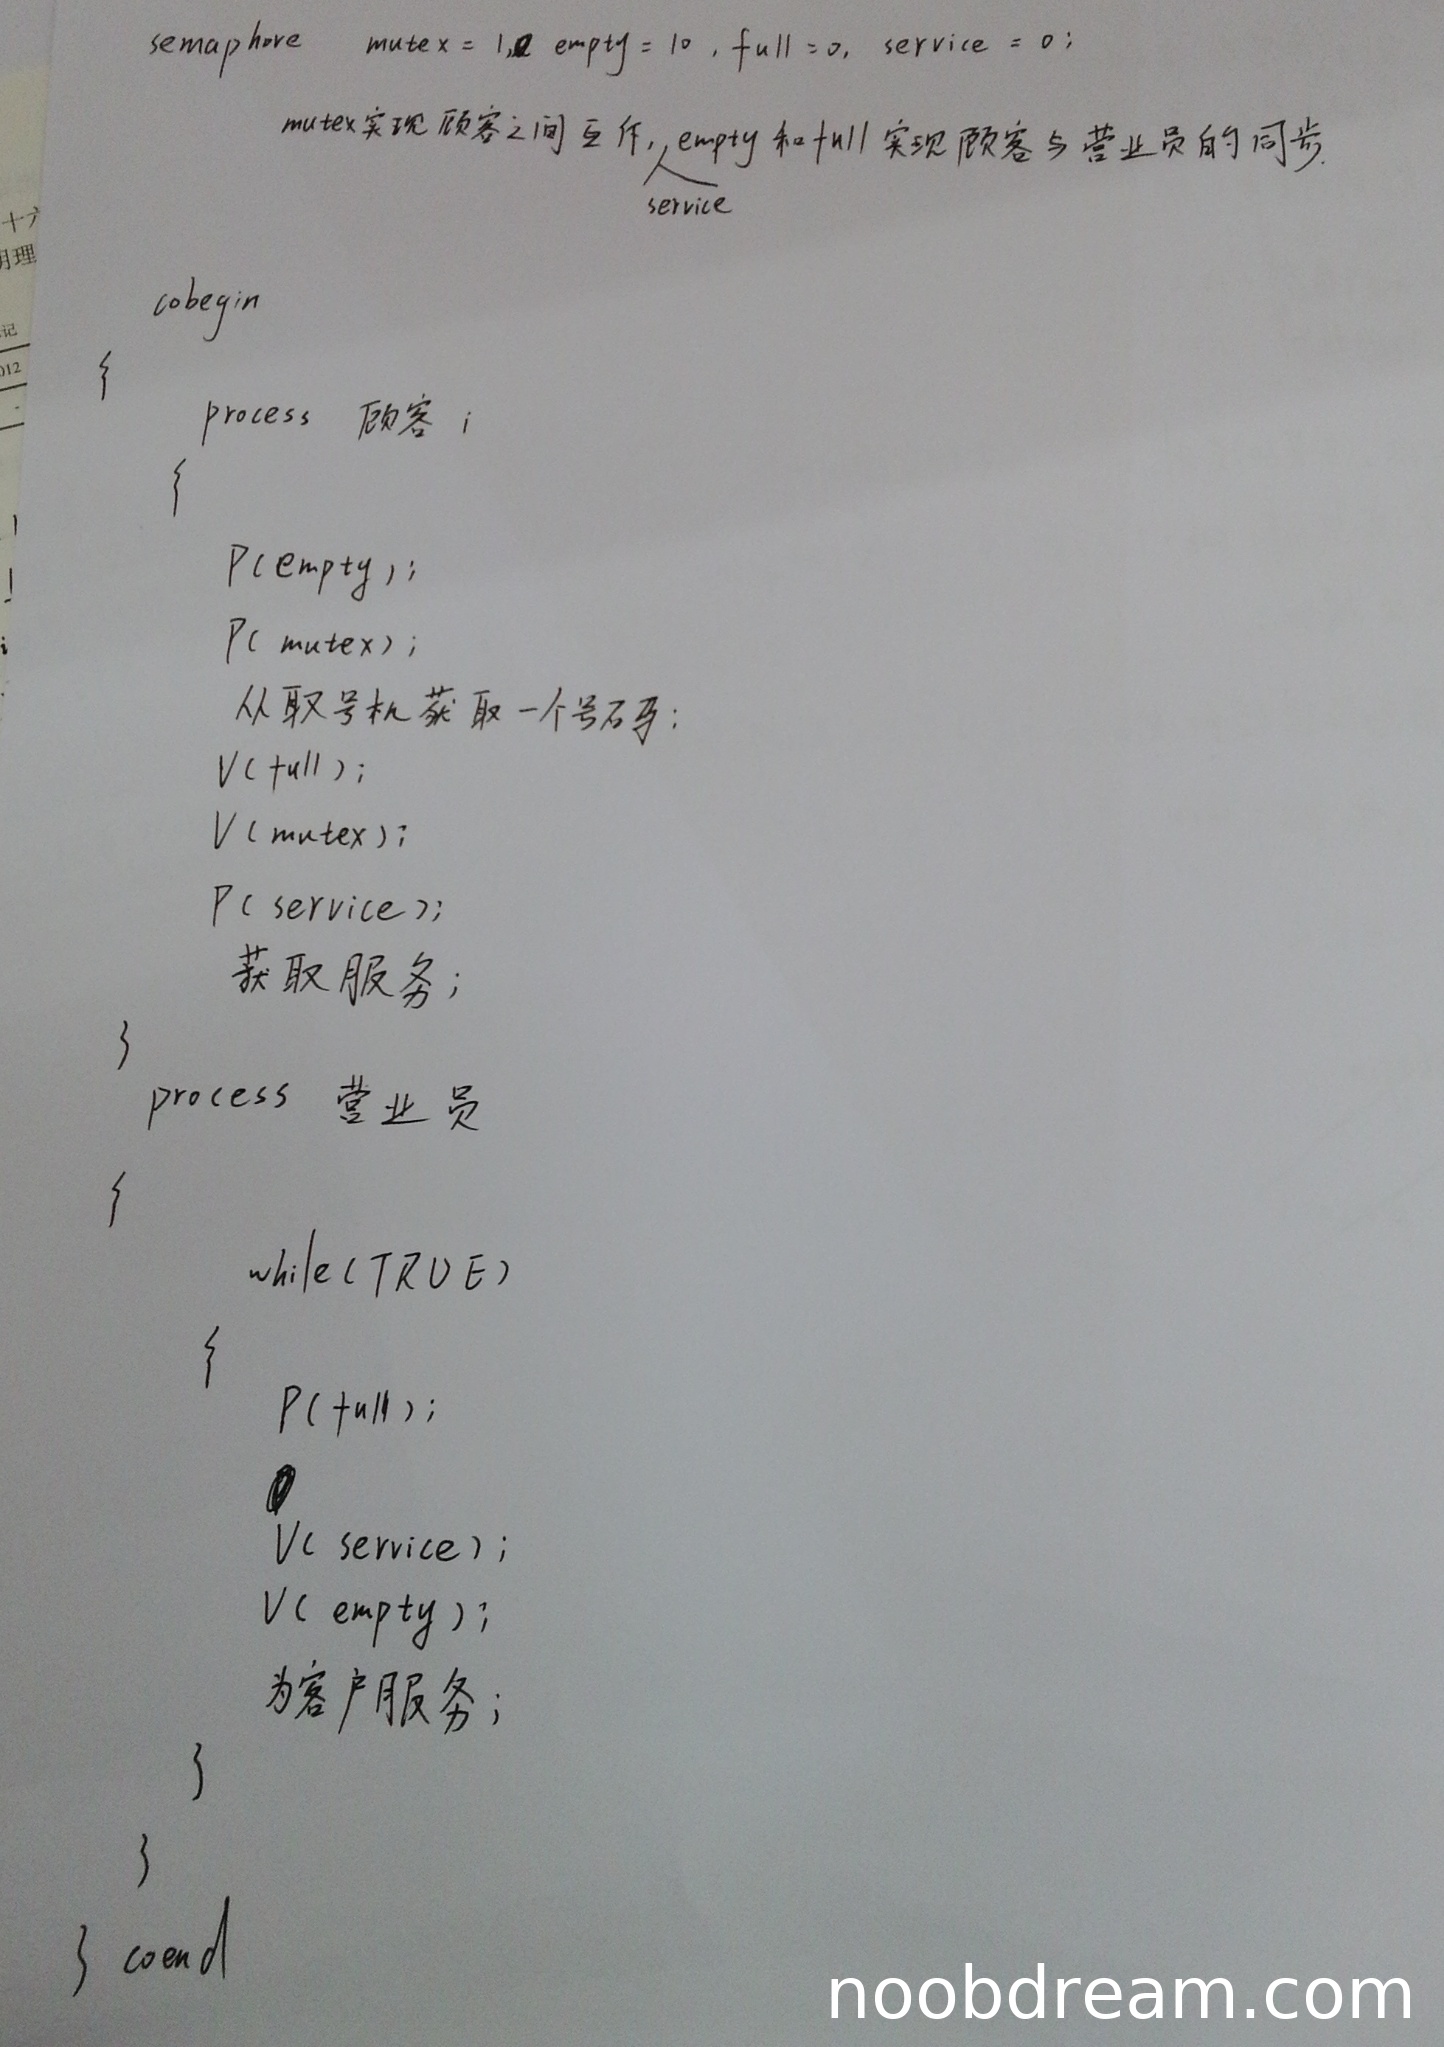 semaphore mutex = 1, empty = 10, full = 0, service = 0;
mutex实现顾客之间互斥, empty和full实现顾客与营业员的同步.
service
cobegin
{
process 顾客 i
{
P(empty);
P(mutex);
从取号机获取一个号码;
V(full);
V(mutex);
P(service);
获取服务;
}
process 营业员
{
while(TRUE)
{
P(full);
V(service);
V(empty);
为客户服务;
}
}
} coend
十六
明理
记
012
noobdream.com